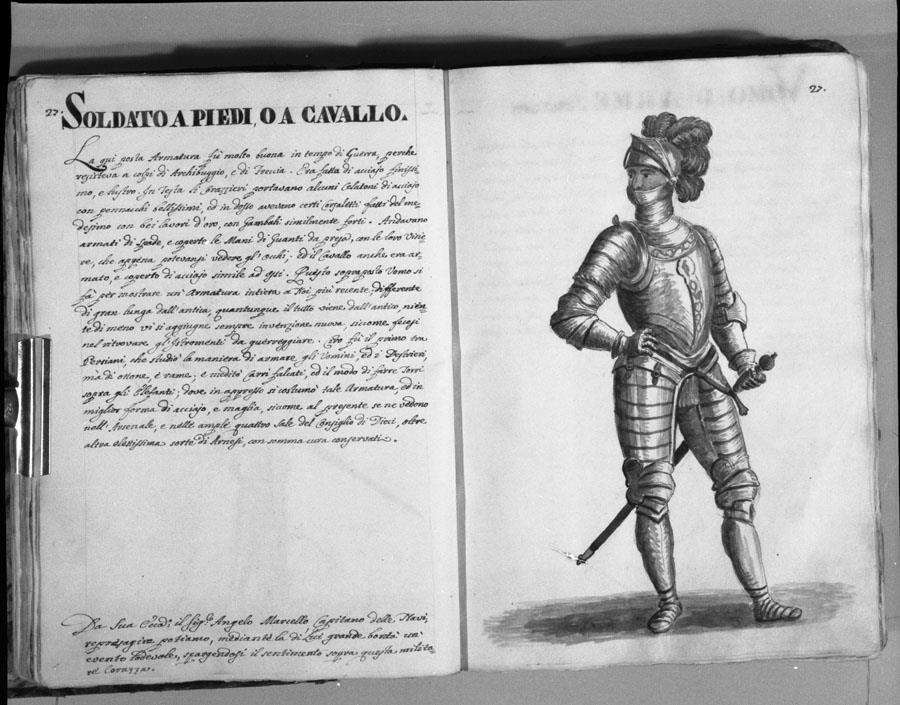 27.
SOLDATO A PIEDI, O A CAVALLO.
La qui posta Armatura fù molto buona in tempo di Guerra, perche
resisteva a colpi di Archibuggio, e di Frecia. Era fatta di acciajo finissi-
mo, e lustro. In Testa li Corazzieri portavano alcuni Celatoni di acciajo
con pennacchi bellissimi, ed in dosso avevano certi Corsaletti fatti del me-
desimo con bei lavori d'oro, con Gambali similmente forti. Andavano
armati di Spade, e coperte le Mani di Guanti da presa, con le loro Visie-
re, che appena potevansi vedere gl'occhi; ed il Cavallo anche era ar-
mato, e coperto di acciajo simile ad essi. Questo sopraposto Uomo si
fà per mostrare un'Armatura intiera a Noi più recente, differente
di gran lunga dall'antica, quantunque il tutto viene dall'antico, nien-
te di meno vi si aggiugne sempre invenzione nuova, sicome fecesi
nel ritrovare gl'Istromenti da guerreggiare. Ciro fù il primo tra
Persiani, che studiò la maniera di armare gli Uomini, ed i Destrieri,
mà di ottone, e rame; e meditò Carri falcati, ed il modo di farre Torri
sopra gli Elefanti; dove in appresso si costumò tale Armatura, ed in
miglior forma di acciajo, e maglia, sicome al presente se ne vedono
nell'Arsenale, e nelle ample quattro Sale del Consiglio di Dieci, oltre
altra sorte di Arnesi, con somma cura conservati.
Da Sua Ecca: il Sigr. Angelo Marcello Capitano delle Navi,
represagire potiamo, mediante la di Lui grande bontà un'
evento lodevole, spargendosi il sentimento sopra questa milita-
re Corazza.
27.